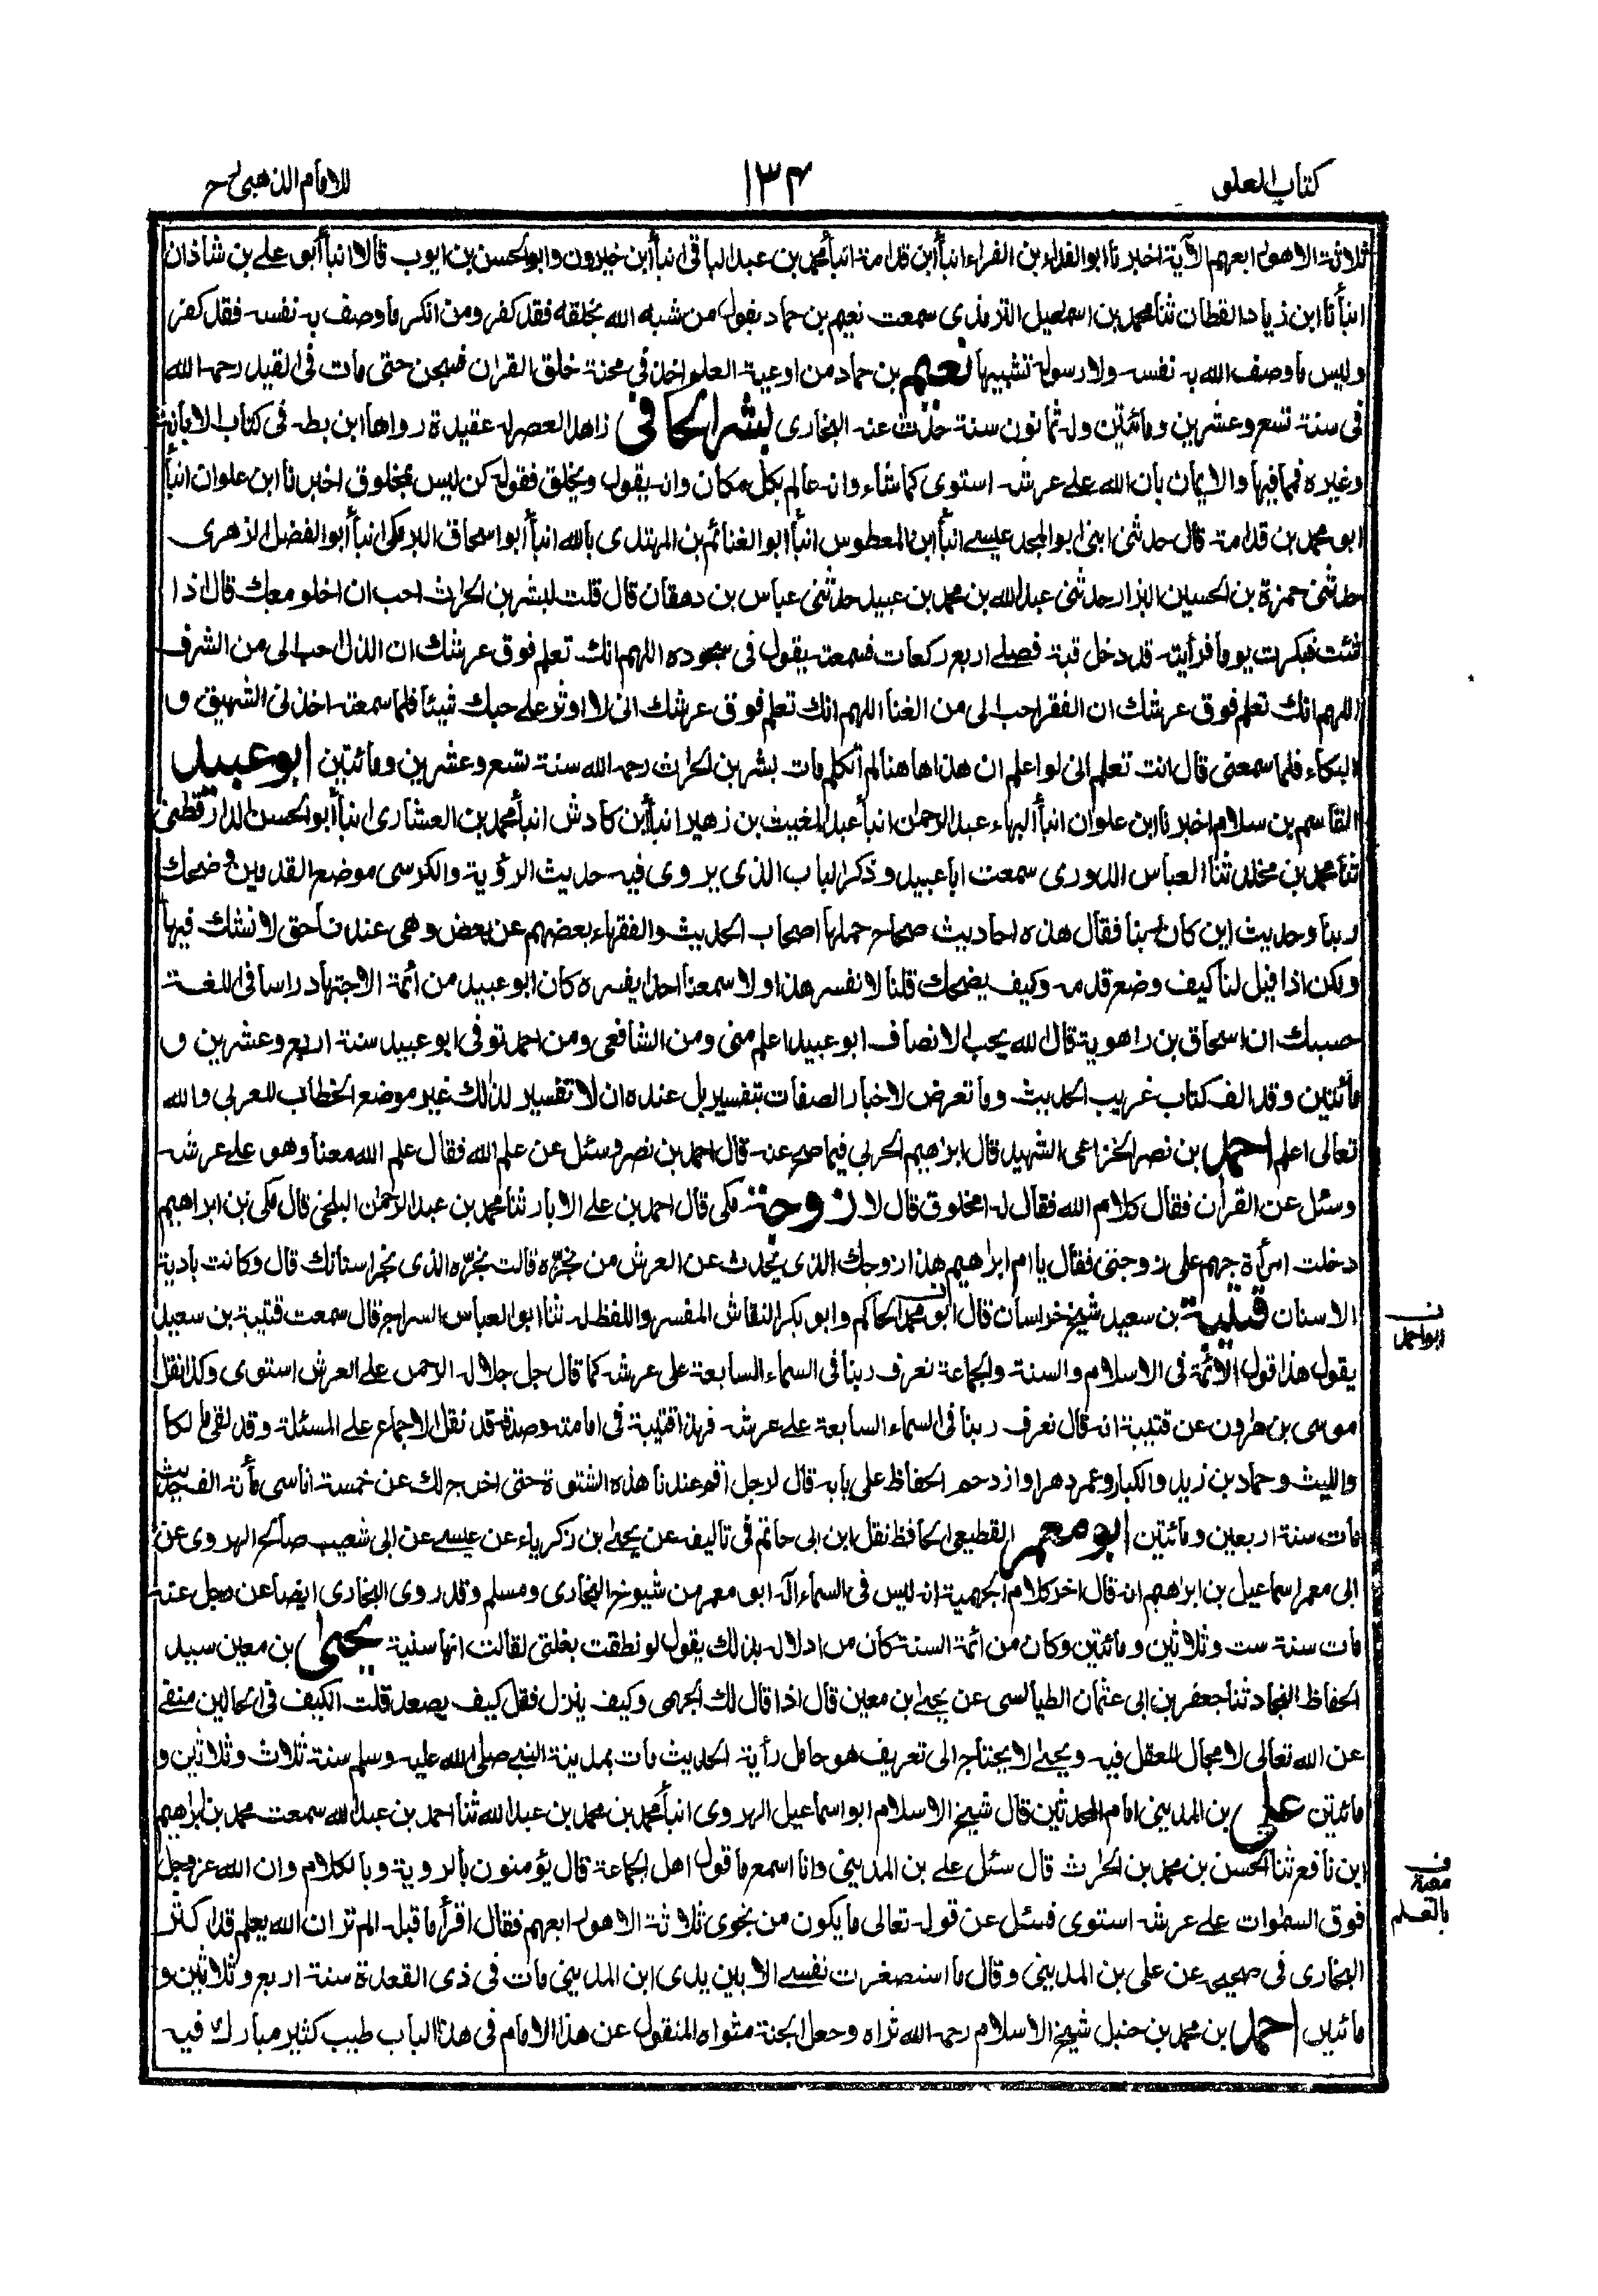 كتاب العلو
١٣٤
للامام الذهبي رح
ثلاثة الا هو رابعهم الآية اخبرنا ابو الفداء بن الفراء انبأ ابن قدامة انبأ محمد بن عبد الباقي انبأ ابن خيرون وابو الحسن بن ايوب قالا انبأ أبو علي بن شاذان
انبأنا ابن زياد القطان ثنا محمد بن اسمعيل الترمذي سمعت نعيم بن حماد يقول من شبه الله بخلقه فقد كفر ومن انكر ما وصف به نفسه فقد كفر
وليس ما وصف الله به نفسه ولا رسوله تشبيها نعيم بن حماد من اوعية العلم اخذ في محنة خلق القران فسجن حتى مات في القيد رحمه الله
في سنة تسع وعشرين ومائتين وله ثمانون سنة حدث عنه البخاري بشر الحافي زاهد العصر له عقيدة رواها ابن بطه في كتاب الابانة
وغيره فمما فيها والايمان بان الله على عرشه استوى كما شاء وانه عالم بكل مكان وانه يقول ويخلق فقوله كن ليس بمخلوق اخبرنا ابن علوان انبأ
ابو محمد بن قدامة قال حدثني ابني ابو المجد عيسى انبأ ابن المعطوس انبأ ابو الغنائم بن المهتدي بالله انبأ أبو اسحاق البرمكي انبأ أبو الفضل الزهري
حدثني حمزة بن الحسين البزار حدثني عبد الله بن محمد بن عبيد حدثني عباس بن دهقان قال قلت لبشر بن الحارث احب ان اخلو معك قال اذا
شئت فبكرت يوما فرأيته قد دخل قبة فصلى اربع ركعات فسمعته يقول في سجوده اللهم انك تعلم فوق عرشك ان الذل احب الي من الشرف
اللهم انك تعلم فوق عرشك ان الفقر احب الي من الغنا اللهم انك تعلم فوق عرشك اني لا اوثر على حبك شيئا فلما سمعته اخذني الشهيق و
البكاء فلما سمعني قال انت تعلم اني لو اعلم ان هذا هاهنا لم أتكلم مات بشر بن الحارث رحمه الله سنة تسع وعشرين ومائتين ابو عبيد
القاسم بن سلام اخبرنا ابن علوان انبأ البهاء عبد الرحمن انبأ عبد المغيث بن زهير انبأ ابن كادش انبأ محمد بن العشاري انبأ أبو الحسن الدارقطني
ثنا محمد بن مخلد ثنا العباس الدوري سمعت ابا عبيد وذكر الباب الذي يروى فيه حديث الرؤية والكرسي موضع القدمين وضحك
ربنا وحديث اين كان ربنا فقال هذه احاديث صحاح حملها اصحاب الحديث والفقهاء بعضهم عن بعض وهي عندنا حق لا نشك فيها
ولكن اذا قيل لنا كيف وضع قدمه وكيف يضحك قلنا لا نفسر هذا ولا سمعنا احدا يفسره كان ابو عبيد من أئمة الاجتهاد راسا في اللغة
حسبك ان اسحاق بن راهوية قال الله يحب الانصاف ابو عبيد اعلم مني ومن الشافعي ومن احمد توفي ابو عبيد سنة اربع وعشرين و
مائتين وقد الف كتاب غريب الحديث وما تعرض لاخبار الصفات بتفسير بل عنده ان لا تفسير لذلك غير موضع الخطاب للعربي والله
تعالى اعلم احمد بن نصر الخزاعي الشهيد قال ابراهيم الحربي فيما صح عنه قال احمد بن نصر وسئل عن علم الله فقال علم الله معنا وهو على عرشه
وسئل عن القرأن فقال كلام الله فقال له امخلوق قال لا زوجة مكي قال احمد بن علي الابار ثنا محمد بن عبد الرحمن البلخي قال مكي بن ابراهيم
دخلت امرأة جهم على زوجتي فقال يا ام ابراهيم هذا زوجك الذي يحدث عن العرش من نجره قالت نجره الذي نجر اسنانك قال وكانت بادية
الاسنان قتيبة بن سعيد شيخ خراسان قال ابو محمد الحاكم وابو بكر النقاش المفسر واللفظ له ثنا ابو العباس السراج قال سمعت قتيبة بن سعيد
ن
ابو احمد
يقول هذا قول الائمة في الاسلام والسنة والجماعة نعرف ربنا في السماء السابعة على عرشه كما قال جل جلاله الرحمن على العرش استوى وكذا نقل
موسى بن هارون عن قتيبة انه قال نعرف ربنا في السماء السابعة على عرشه فهذا قتيبة في امامته وصدقه قد نقل الاجماع على المسئلة وقد لقي مالكا
والليث وحماد بن زيد والكبار وعمر دهرا وازدحم الحفاظ على بابه قال لرجل اقم عندنا هذه الشتوة حتى اخرج لك عن خمسة اناسي مأئة الف حديث
مات سنة اربعين ومائتين ابو معمر القطيعي الحافظ نقل ابن ابي حاتم في تاليفه عن يحيى بن زكرياء عن عيسى عن ابي شعيب صالح الهروي عن
ابي معمر اسماعيل بن ابراهيم انه قال اخر كلام الجهمية انه ليس في السماء آله ابو معمر من شيوخ البخاري ومسلم وقد روى البخاري ايضا عن رجل عنه
مات سنة ست وثلاثين ومائتين وكان من أئمة السنة كان من ادلاله بذلك يقول لو نطقت بغلتي لقالت انها سنية يحيى بن معين سيد
الحفاظ النجاد ثنا جعفر بن ابي عثمان الطيالسي عن يحيى بن معين قال اذا قال لك الجهمي وكيف ينزل فقل كيف يصعد قلت الكيف في الحالين منفي
عن الله تعالى لا مجال للعقل فيه ويحيى لا يحتاج الى تعريف هو حامل رأية الحديث مات بمدينة النبي صلى الله عليه وسلم سنة ثلاث وثلاثين و
مائتين علي بن المديني امام المحدثين قال شيخ الاسلام ابو اسماعيل الهروي انبأ محمد بن محمد بن عبد الله ثنا احمد بن عبد الله سمعت محمد بن ابراهيم
ابن نافع ثنا الحسن بن محمد بن الحارث قال سئل علي بن المديني وانا اسمع ما قول اهل الجماعة قال يؤمنون بالروية وبالكلام وان الله عز وجل
ف
معية
بالعلم
فوق السموات على عرشه استوى فسئل عن قوله تعالى ما يكون من نجوى ثلاثة الا هو رابعهم فقال اقرأ ما قبله الم تر ان الله يعلم قد اكثر
البخاري في صحيحه عن علي بن المديني وقال ما استصغرت نفسي الا بين يدي ابن المديني مات في ذي القعدة سنة اربع وثلاثين و
مائتين احمد بن محمد بن حنبل شيخ الاسلام رحمه الله ثراه وجعل الجنة مثواه المنقول عن هذا الامام في هذا الباب طيب كثير مبارك فيه